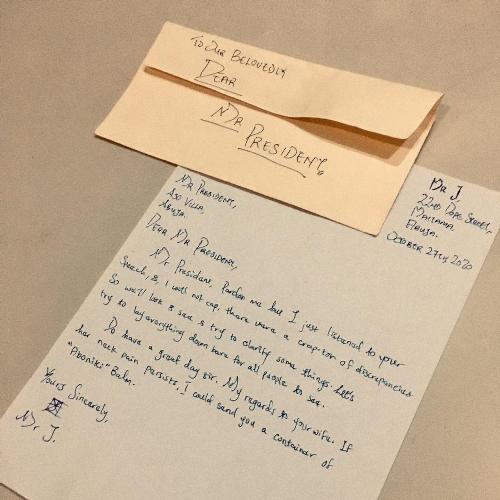 To Our Belovedly
Dear
Mr
President,
Mr J.
22nd Pope Street,
Maitama,
Abuja.
October 27th 2020
Mr President,
Aso Villa,
Abuja.
Dear Mr President,
Mr President, Pardon me but I just listened to your
Speech, &, I will not cap, there were a crap-ton of discrepancies
So we'll look & see & try to clarify some things. Let's
try to lay everything down bare for all people to see.
Do have a great day sir. My regards to your wife. If
her neck pain persists, I could send you a container of
"Aboniki" Balm.
Yours Sincerely,
Mr J.